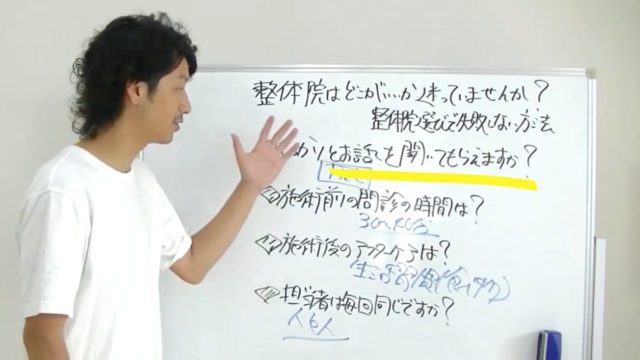 整体院はどこがいいか迷っていませんか?
整体院選びで失敗しない方法
かりとお話しを聞いてもらえますか?
施術前の問診の時間は?
施術後のアフターケアは?
生活習慣(食べ物)
担当者は毎回同じですか?
人と人